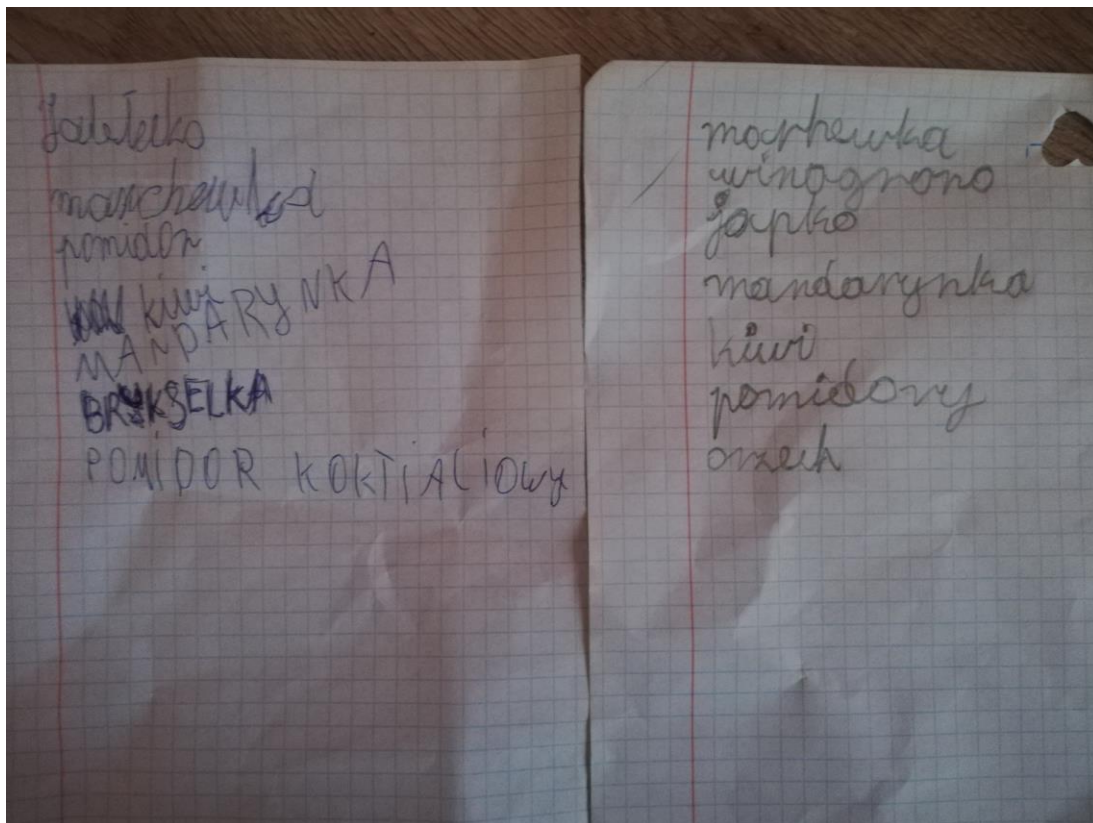 marchewka
pomidor
kiwi
MANDARYNKA
BRYKSELKA
POMIDOR KOKTiALiOWy
winogrono
japko
mandarynka
kiwi
pomidory
orzech